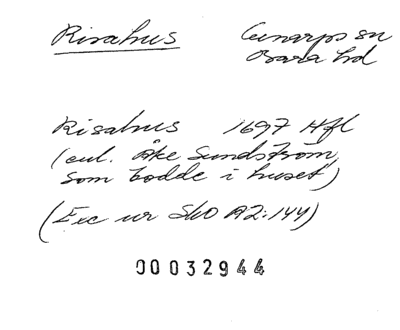 Risahus Genarps sn
Bara hd
Risahus 1697 Hfl
(enl. Åke Sundström,
som bodde i huset)
(Exc ur SkO A2:144)
00032944